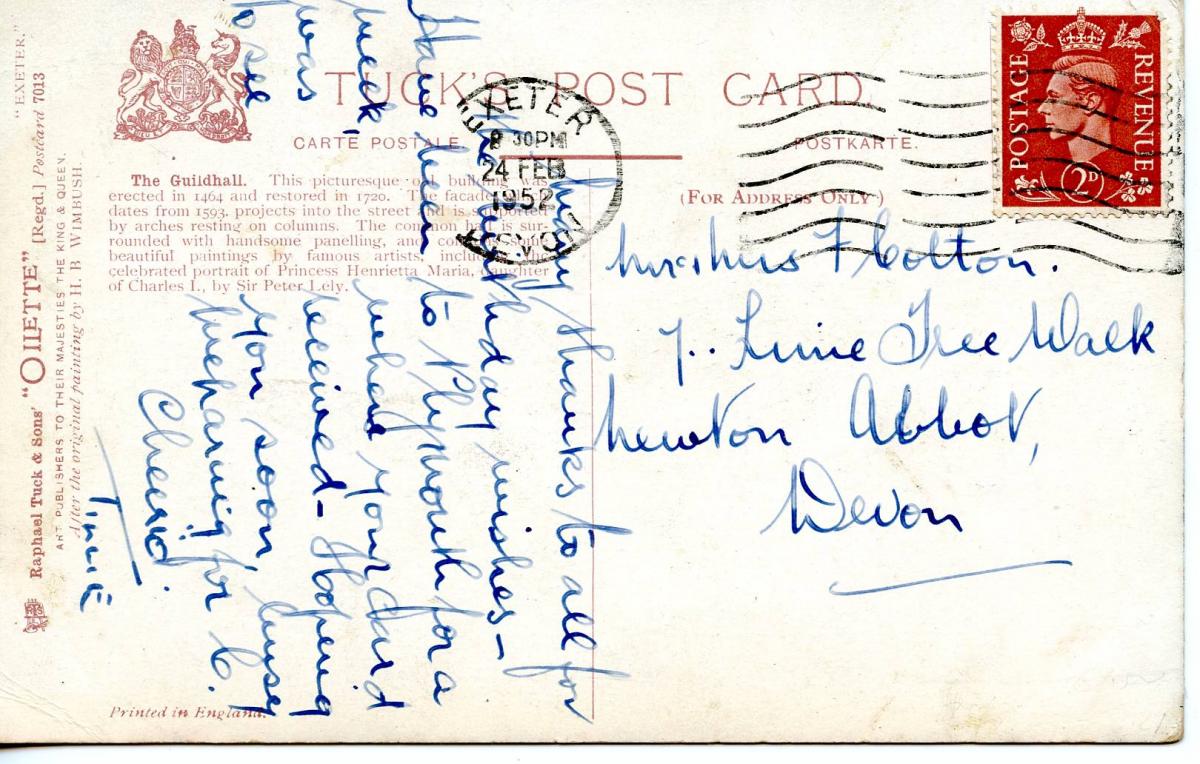 TUCK'S POST CARD
CARTE POSTALE.
POSTKARTE.
(FOR ADDRESS ONLY)
The Guildhall. This picturesque old building was
erected in 1464 and restored in 1720. The facade
dates from 1593, projects into the street and is supported
by arches resting on columns. The common hall is sur-
rounded with handsome panelling, and contains some
beautiful paintings by famous artists, including the
celebrated portrait of Princess Henrietta Maria, daughter
of Charles I., by Sir Peter Lely.
"EXETER."
Raphael Tuck & Sons' "OILETTE" [Regd.] Postcard 7013
ART PUBLISHERS TO THEIR MAJESTIES THE KING & QUEEN.
After the original painting by H. B. WIMBUSH.
Printed in England.
EXETER
8 30PM
24 FEB
1952
DEVON
POSTAGE
REVENUE
2D
Mr & Mrs F Colton.
7.. Lime Tree Walk
Newton Abbot,
Devon
Many thanks to all for
the birthday wishes -
Have been to Plymouth for a
week, was when your card
was received - Hoping
to see you soon, busy
preparing for C.
Cheerio